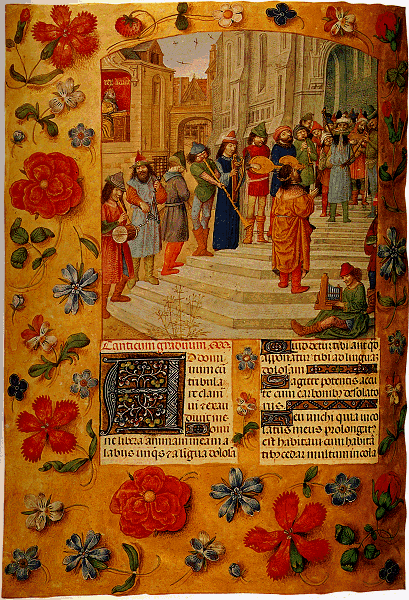 Canticum graduum
D domi
num cu
tribula
re clam
aui & exau
diuit me
Domi
ne libera animam meam a
labiis iniqs & a ligua dolosa
Quid detur tibi aut qd
apponatur tibi ad lingua
dolosam
Sagitte potentis acute
cum carbonib desolato
riis
Heu michi quia inco
latus meus prolongat
est habitaui cum habita
tib cedar multum incola